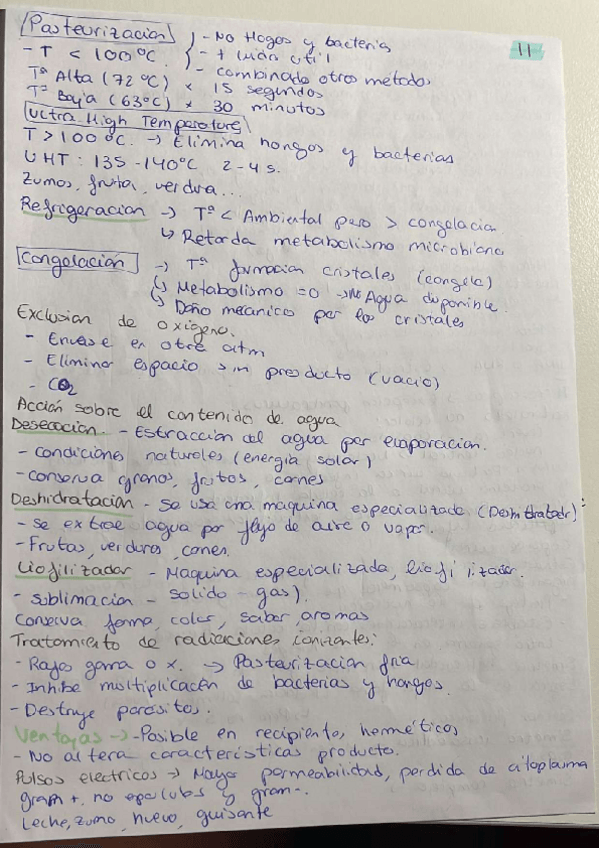 Pasteurización - No Hogos y bacterias 11
- T < 100ºC. - + vida útil
Tª Alta (72ºC) * 15 segundos - combinado otros métodos
Tª Baja (63ºC) * 30 minutos
Ultra High Temperature
T > 100ºC. → Elimina hongos y bacterias
UHT: 135 - 140ºC 2-4 s.
Zumos, fruta, verdura...
Refrigeracion → Tª < Ambiental pero > congelacion
↳ Retarda metabolismo microbiano
Congelación → Tª formacion cristales (congela)
↳ Metabolismo = 0 → No Agua disponible.
↳ Daño mecanico por los cristales
Exclusion de oxigeno.
- Envase en otra atm
- Elimina espacio sin producto (vacio)
- CO2
Acción sobre el contenido de agua
Desecacion. - Estracción del agua por evaporacion.
- condiciones naturales (energia solar)
- conserva granos, frutos, carnes
Deshidratación - Se usa una maquina especializada (Deshidratador):
- se extrae agua por flujo de aire o vapor.
- Frutas, verduras, carnes.
Liofilizador - Maquina especializada, liofilizador.
- sublimacion - solido - gas).
Conserva forma, color, sabor, aromas
Tratamiento de radiaciones ionizantes:
- Rayos gama o x. → Pasteurización fria
- Inhibe multiplicación de bacterias y hongos.
- Destruye parásitos.
Ventajas → - Posible en recipientes herméticos
- No altera características producto.
Pulsos electricos → Mayor permeabilidad, perdida de citoplasma
gram +, no y gram -.
Leche, zumo, huevo, guisante